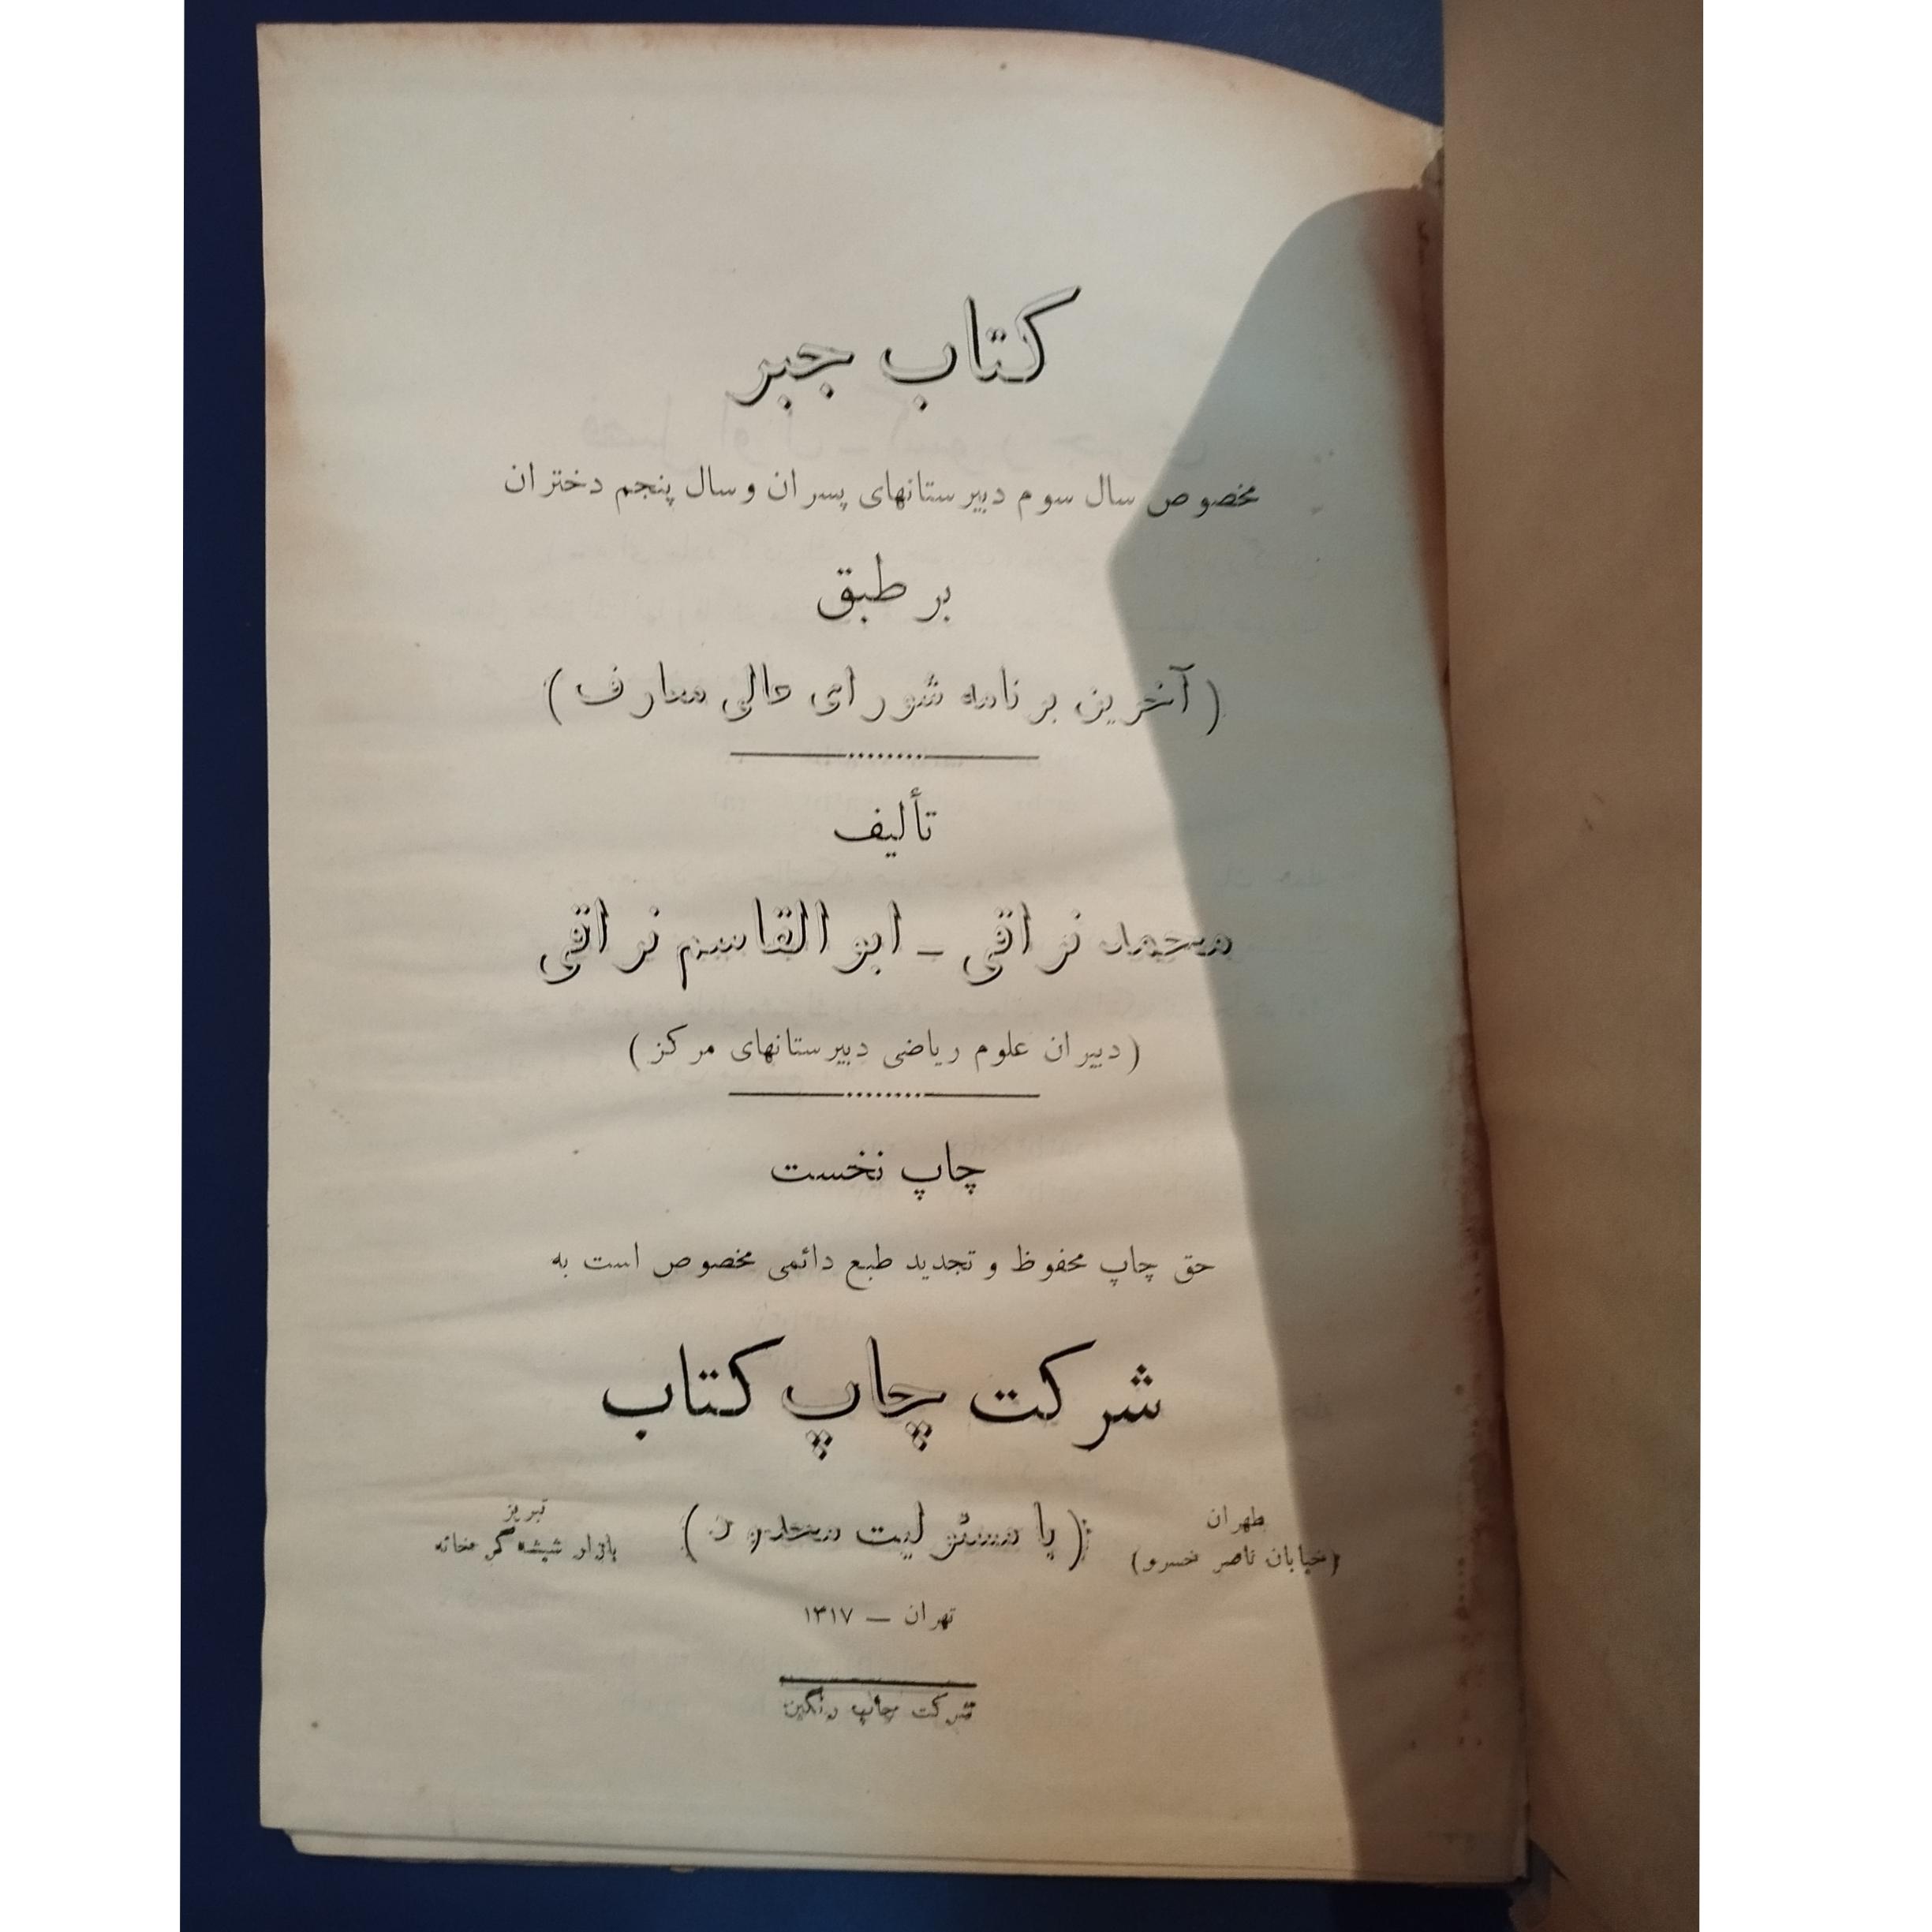 کتاب جبر
مخصوص سال سوم دبیرستانهای پسران و سال پنجم دختران
بر طبق
(آخرین برنامه شورای عالی معارف)
تألیف
محمد نراقی ـ ابوالقاسم نراقی
(دبیران علوم ریاضی دبیرستانهای مرکز)
چاپ نخست
حق چاپ محفوظ و تجدید طبع دائمی مخصوص است به
شرکت چاپ کتاب
(با مسئولیت محدود)
طهران
(خیابان ناصر خسرو)
تبریز
بازار شیشه گر خانه
تهران — ۱۳۱۷
شرکت چاپ رنگین